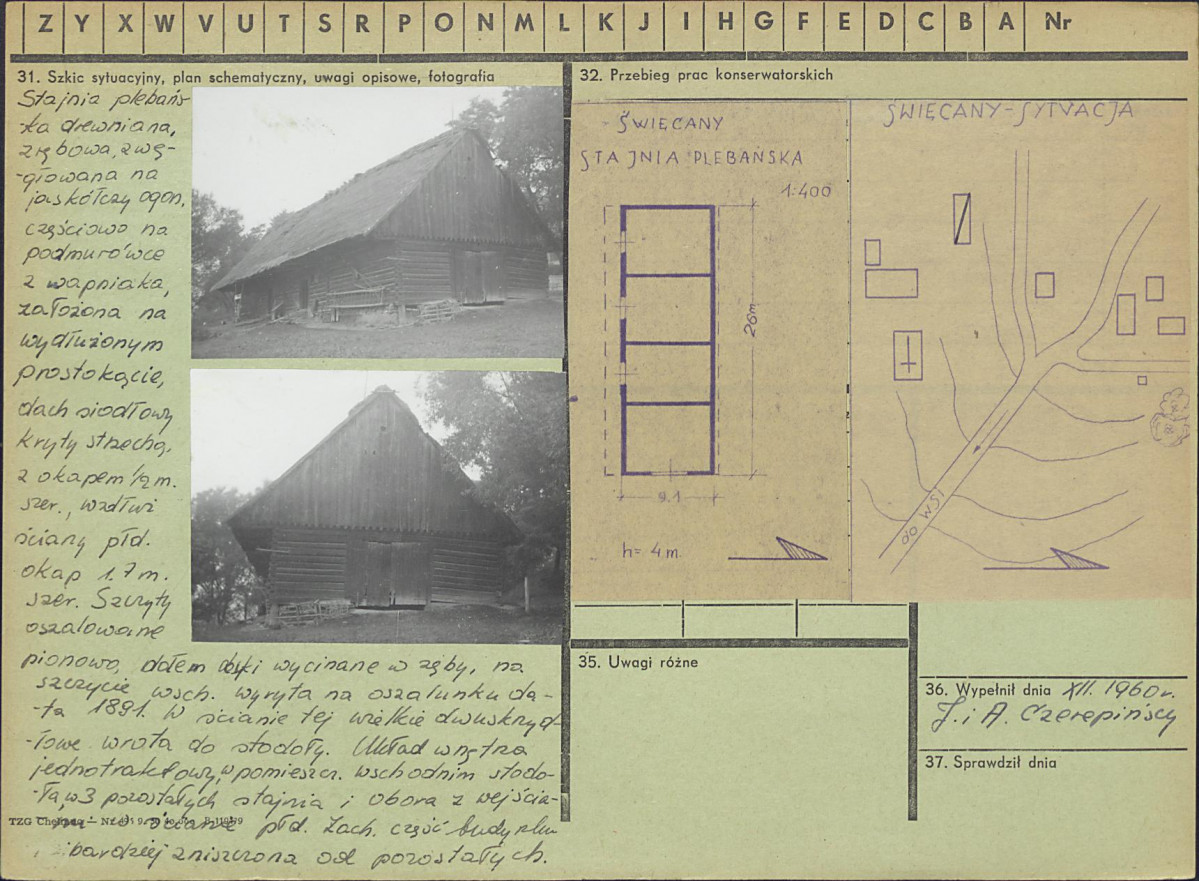 Z Y X W V U T S R P O N M L K J I H G F E D C B A Nr
31. Szkic sytuacyjny, plan schematyczny, uwagi opisowe, fotografia
Stajnia plebańs-
-ka drewniana,
zrębowa, zwę-
-głowana na
jaskółczy ogon,
częściowo na
podmurówce
z wapniaka,
założona na
wydłużonym
prostokącie,
dach siodłowy
kryty strzechą,
z okapem 1/2 m.
szer., wzdłuż
ściany płd.
okap 1.7 m.
szer. Szczyty
oszalowane
pionowo, dołem deski wycinane w zęby, na
szczycie wsch. wyryta na oszalunku da-
-ta 1891. W ścianie tej wielkie dwuskrzyd-
-łowe wrota do stodoły. Układ wnętrza
jednotraktowy, w pomieszcz. wschodnim stodo-
-ła, w 3 pozostałych stajnia i obora z wejścia-
-mi w ścianie płd. Zach. część budynku
bardziej zniszczona od pozostałych.
TZG Chełmno — Nr
32. Przebieg prac konserwatorskich
ŚWIĘCANY
STAJNIA PLEBAŃSKA
1:400
26m
9.1
h= 4 m.
ŚWIĘCANY-SYTUACJA
do WSI
35. Uwagi różne
36. Wypełnił dnia XII. 1960 r.
J. i A. Czerepińscy
37. Sprawdził dnia